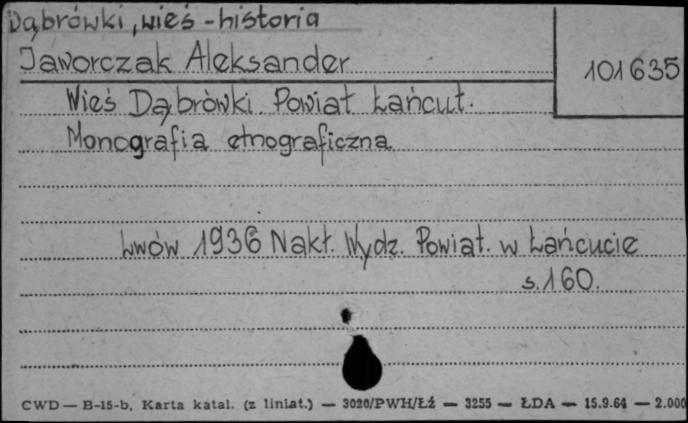 Dąbrówki, wieś - historia
Jaworczak Aleksander
101635
Wieś Dąbròwki. Powiat Łańcut.
Monografia etnograficzna
Lwów 1936 Nakł. Wydz. Powiat. w Łańcucie
s. 160.
CWD — B-15-b, Karta katal. (z liniat.) — 3020/PWH/Łź — 3255 — ŁDA — 15.9.64 — 2.000